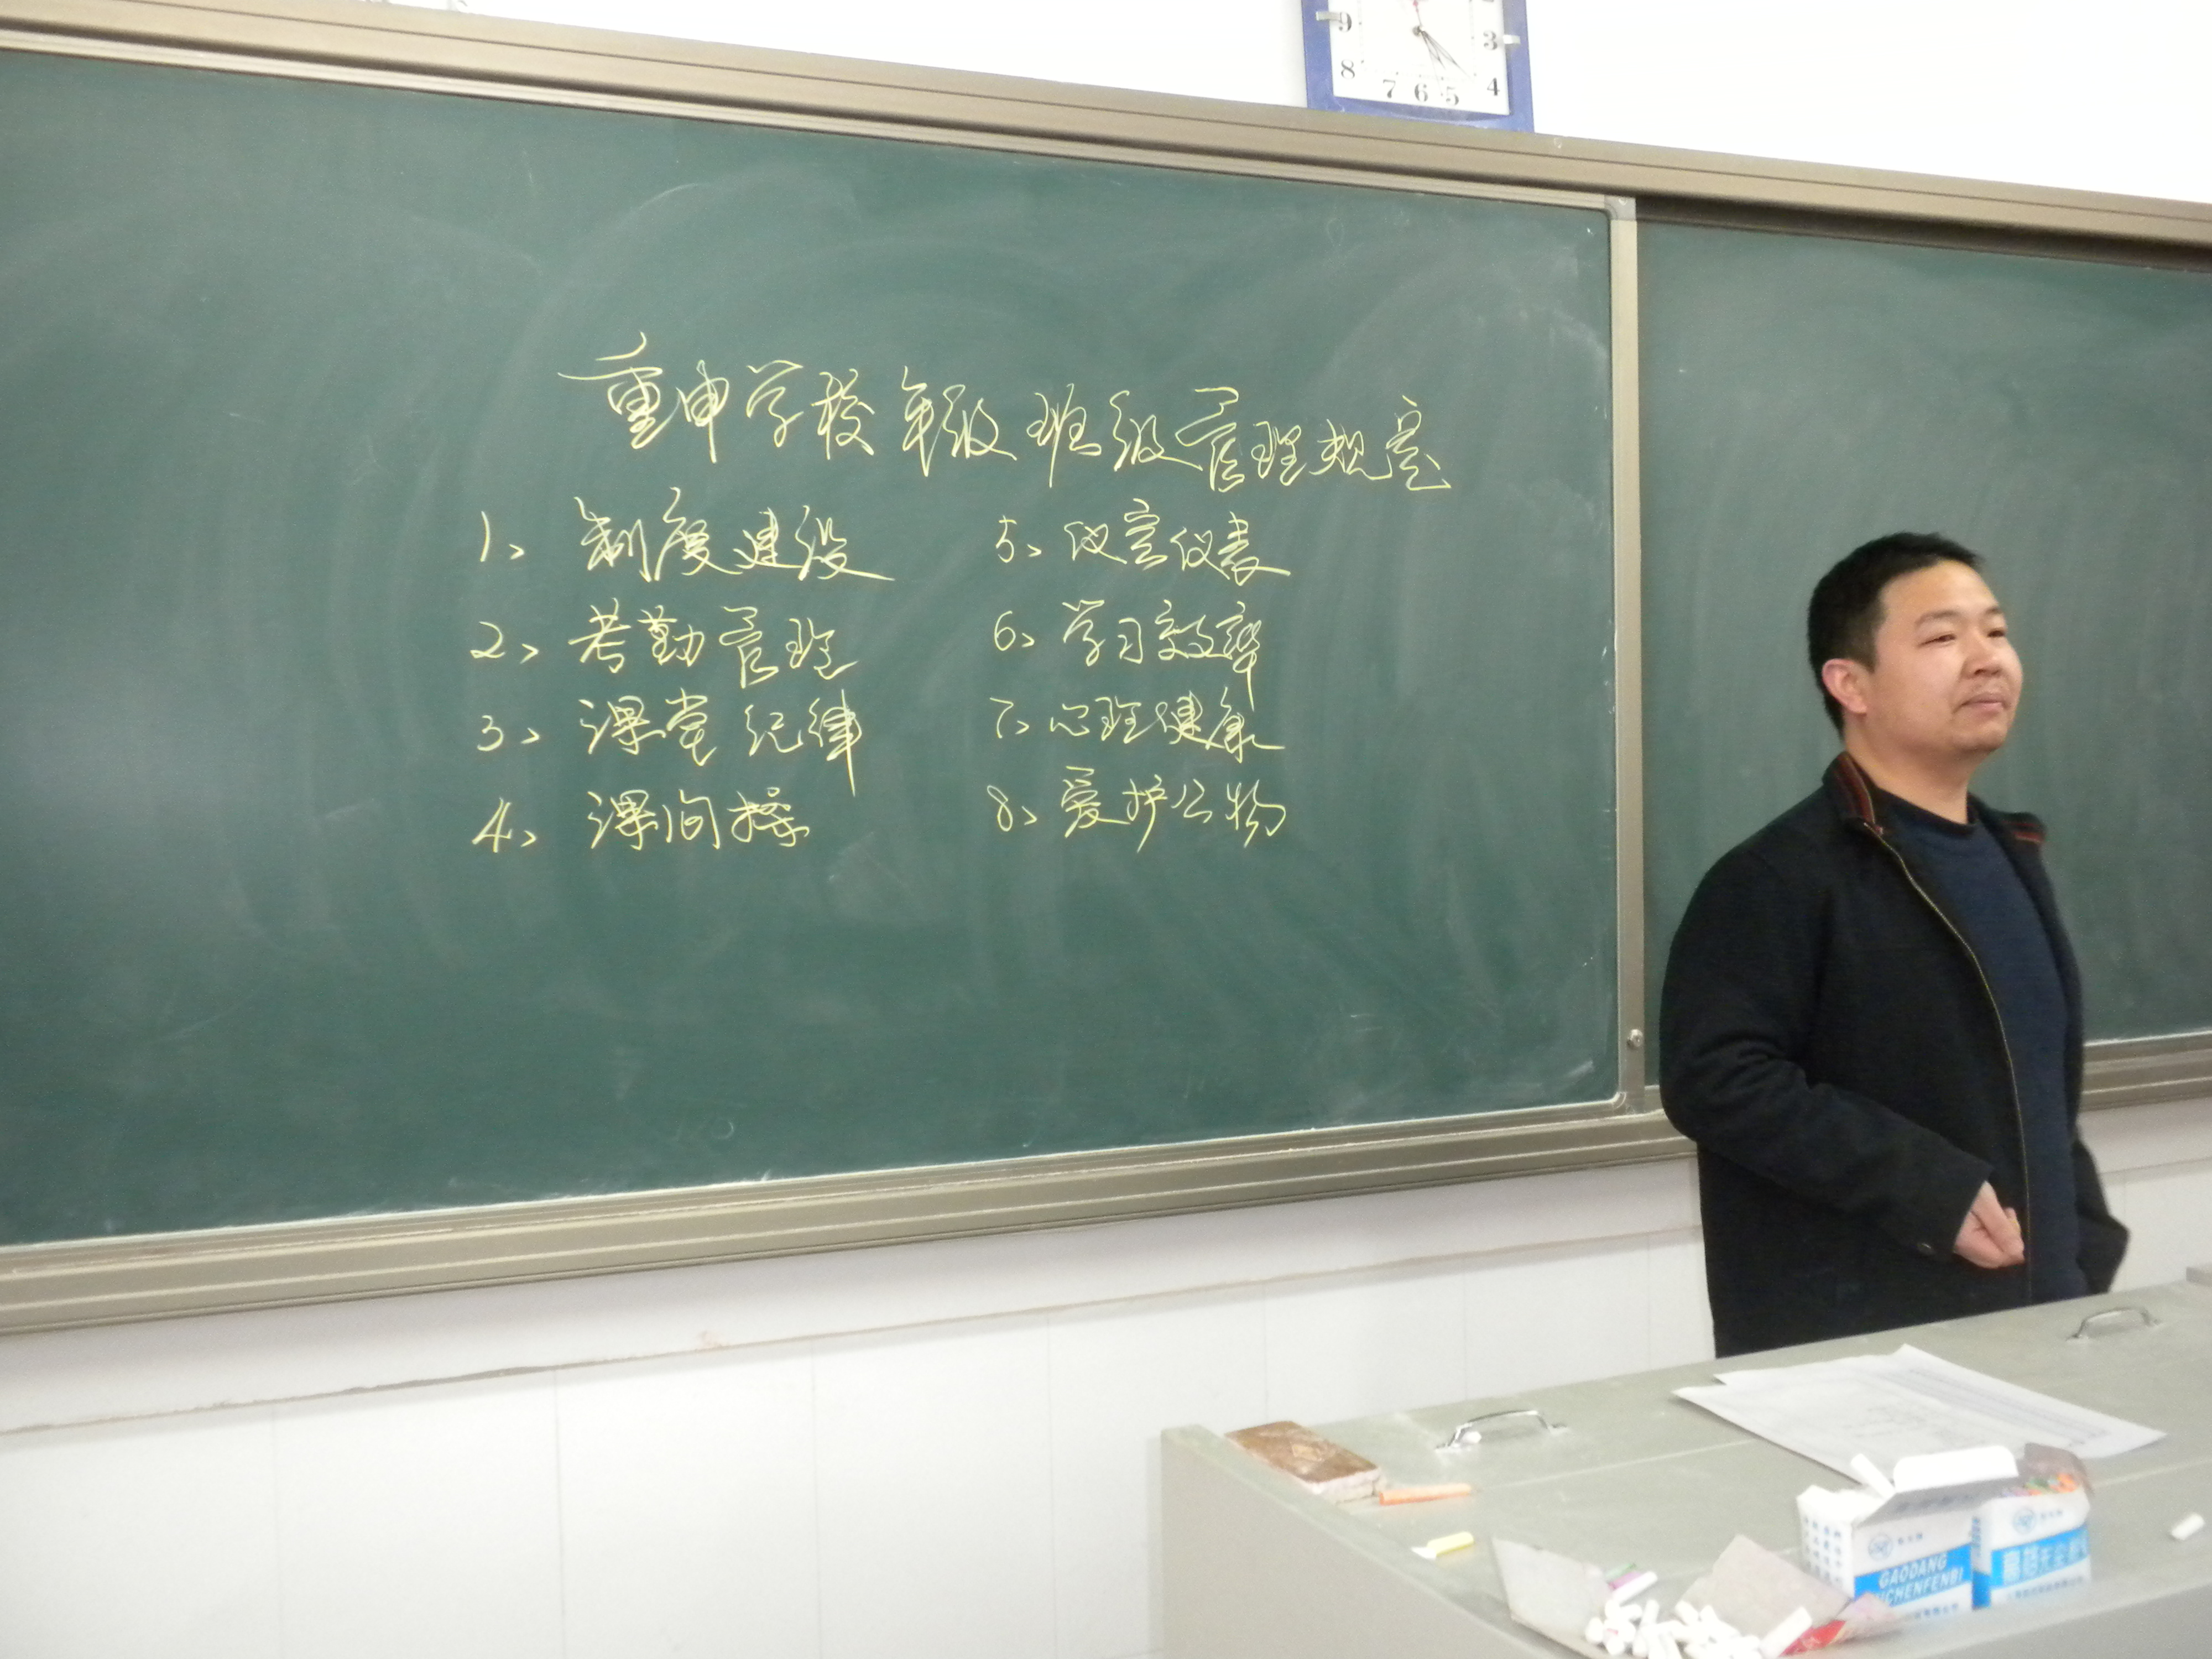 9
3
8
7
6
5
4
重申学校年级班级管理规定
1、制度建设
2、考勤管理
3、课堂纪律
4、课间操
5、仪容仪表
6、学习效率
7、心理健康
8、爱护公物
GAODANG
高档无尘